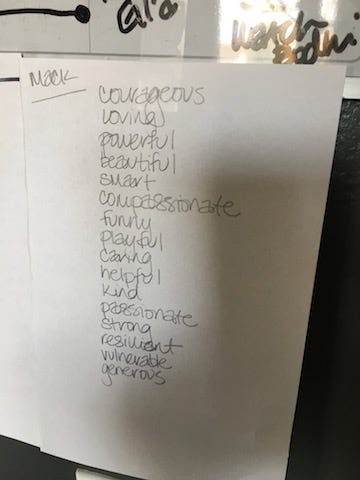 Mack
courageous
loving
powerful
beautiful
smart
compassionate
funny
playful
caring
helpful
kind
passionate
strong
resilient
vulnerable
generous